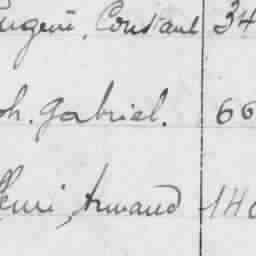 Eugène, Constant 34
ph. Gabriel. 66
Henri, Armand 140